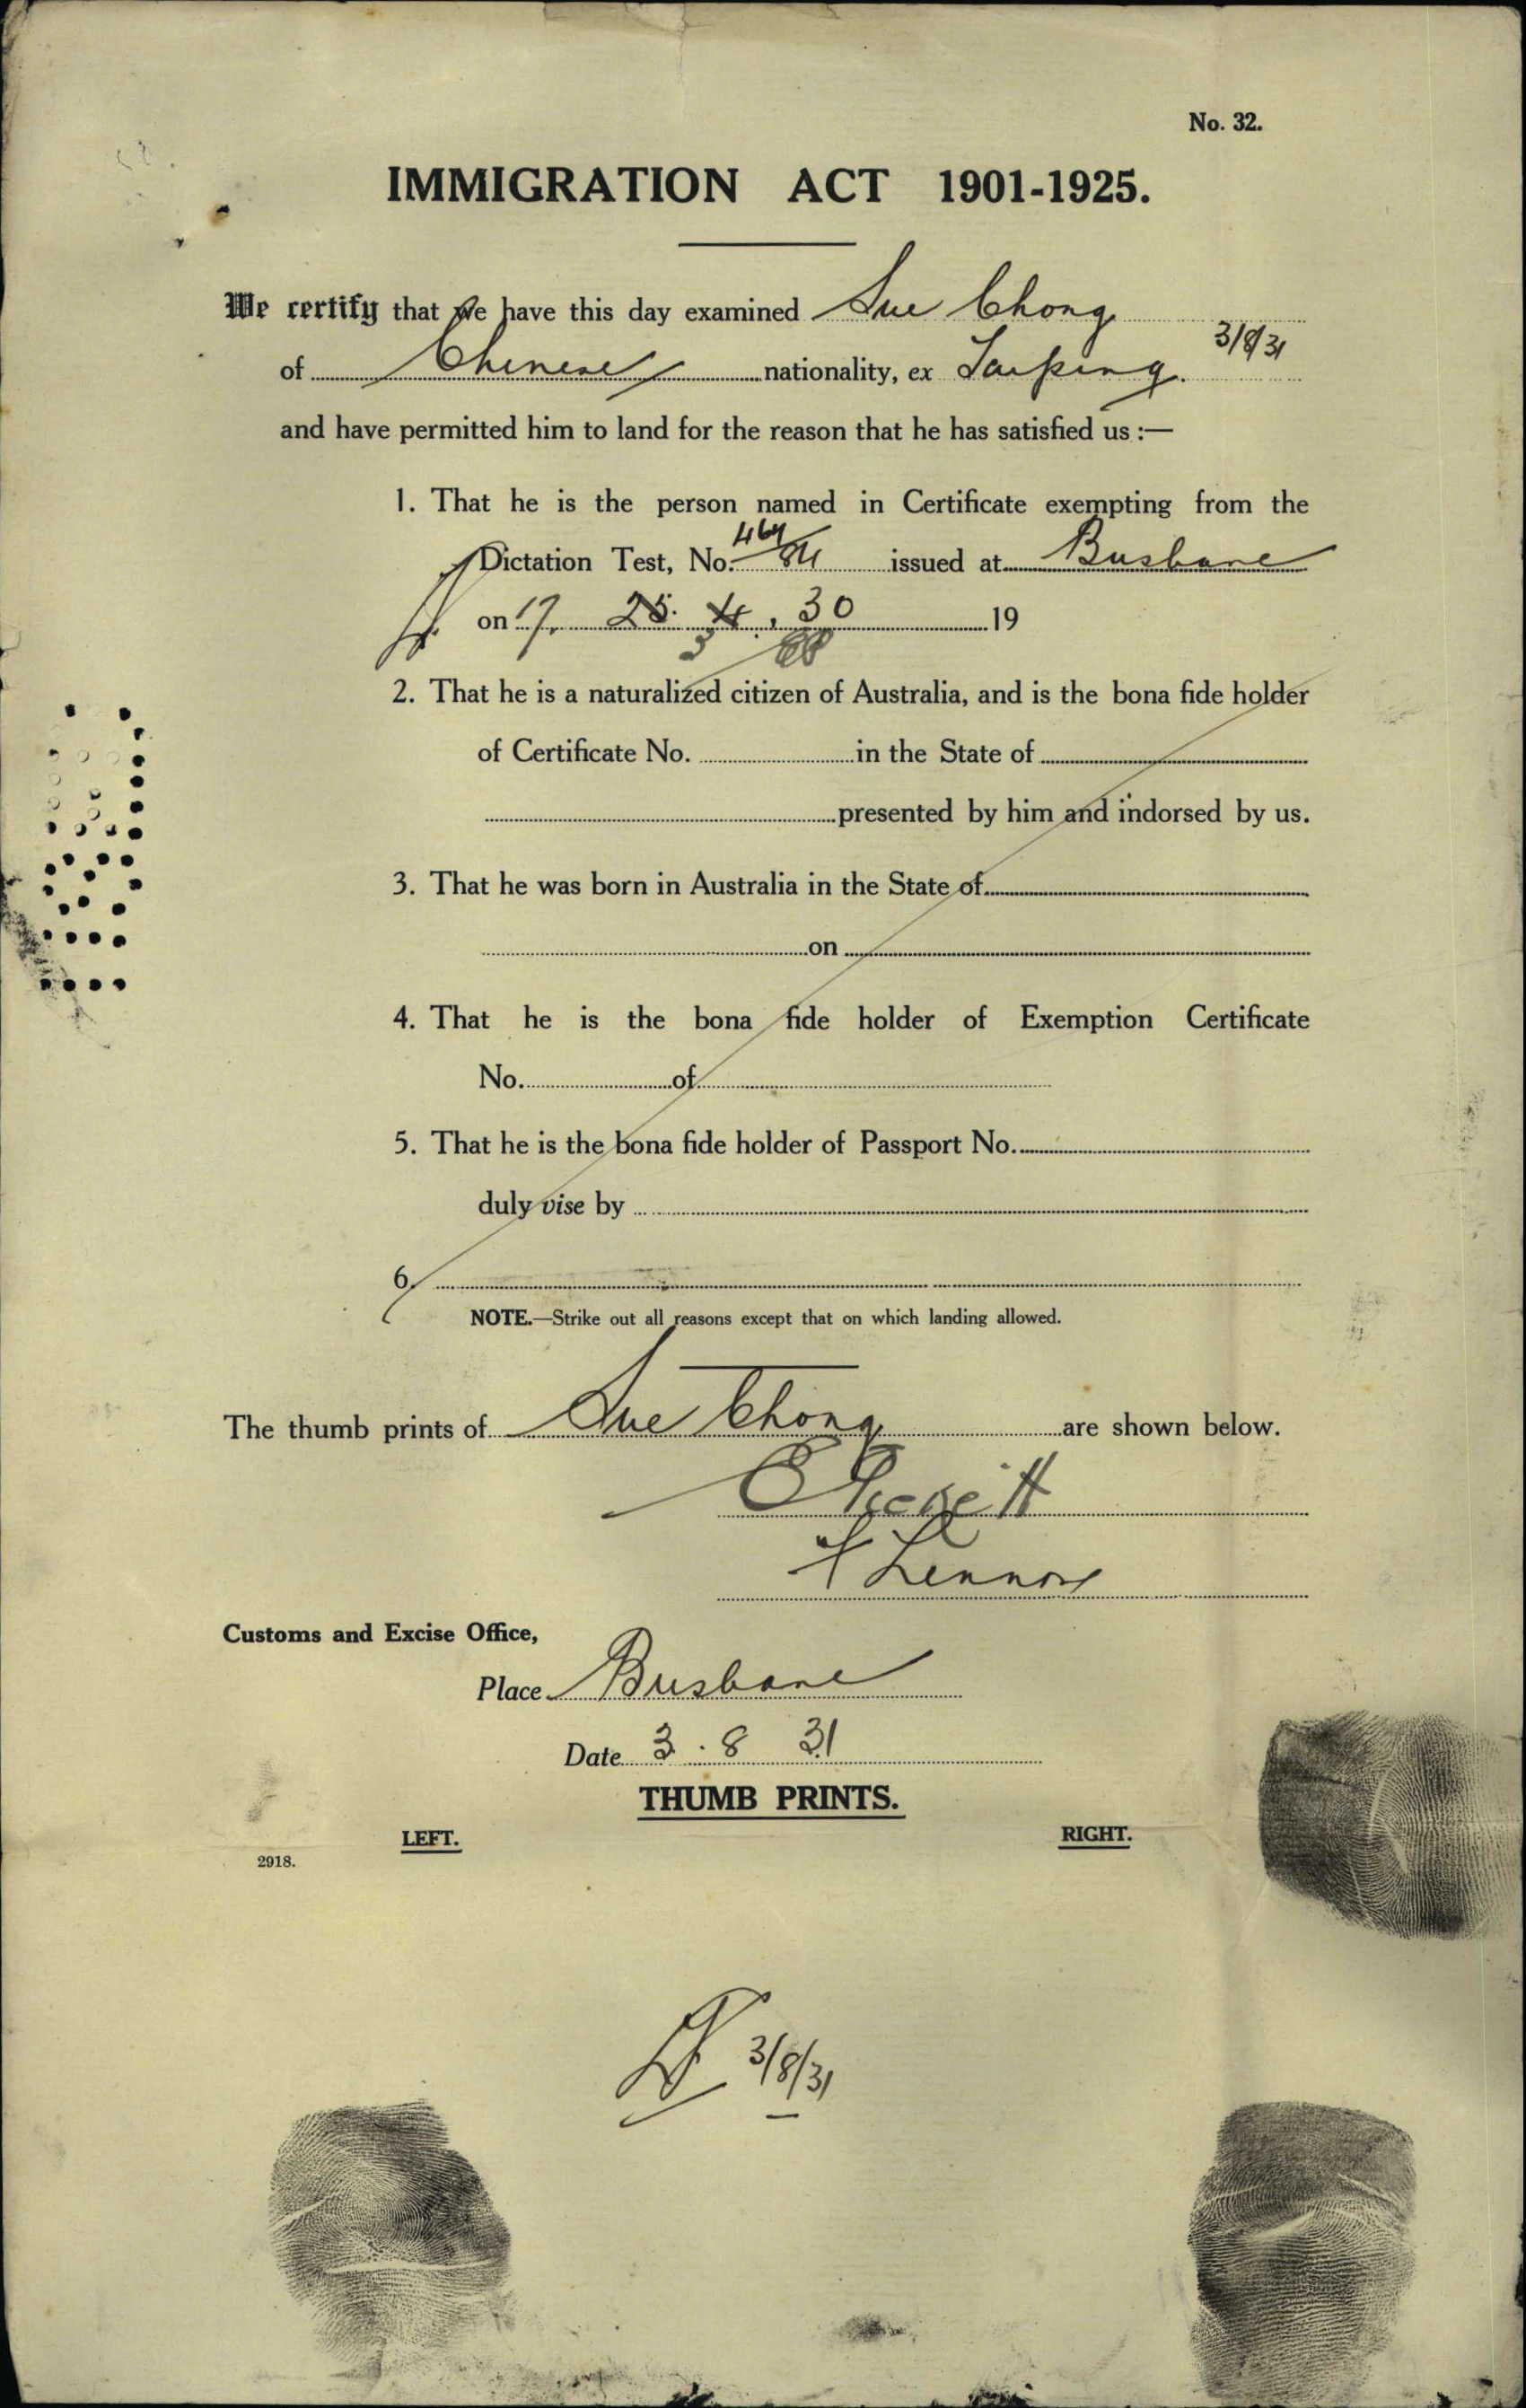 No. 32.
IMMIGRATION ACT 1901-1925.
We certify that we have this day examined Sue Chong
3/8/31
of Chinese nationality, ex Taiping.
and have permitted him to land for the reason that he has satisfied us :—
1. That he is the person named in Certificate exempting from the
Dictation Test, No. 464 issued at Brisbane
on 17. 25. 4. 30 19
5
2. That he is a naturalized citizen of Australia, and is the bona fide holder
of Certificate No. in the State of
presented by him and indorsed by us.
3. That he was born in Australia in the State of
on
4. That he is the bona fide holder of Exemption Certificate
No. of
5. That he is the bona fide holder of Passport No.
duly vise by
6.
NOTE.—Strike out all reasons except that on which landing allowed.
The thumb prints of Sue Chong are shown below.
Lennox
Customs and Excise Office,
Place Brisbane
Date 3. 8 31
THUMB PRINTS.
LEFT. RIGHT.
2918.
3/8/31